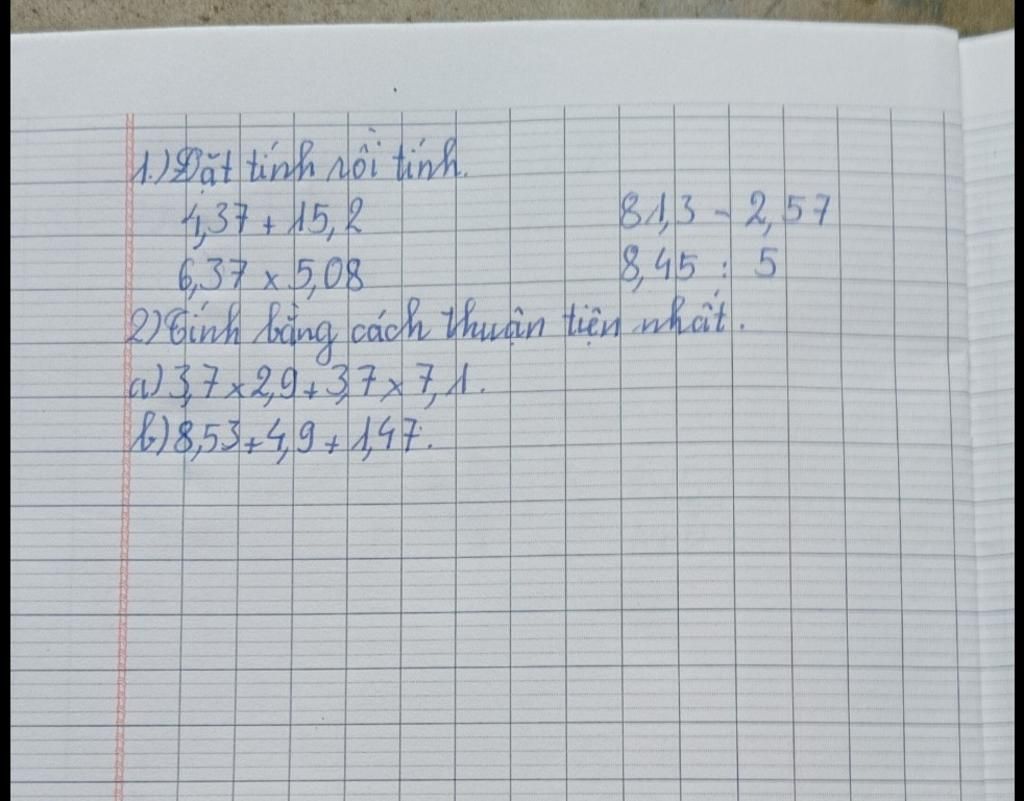 1.) Đặt tính rồi tính.
4,37 + 15,2 81,3 - 2,57
6,37 x 5,08 8,45 : 5
2) Tính bằng cách thuận tiện nhất.
a) 3,7 x 2,9 + 3,7 x 7,1.
b) 8,53 + 4,9 + 1,47.